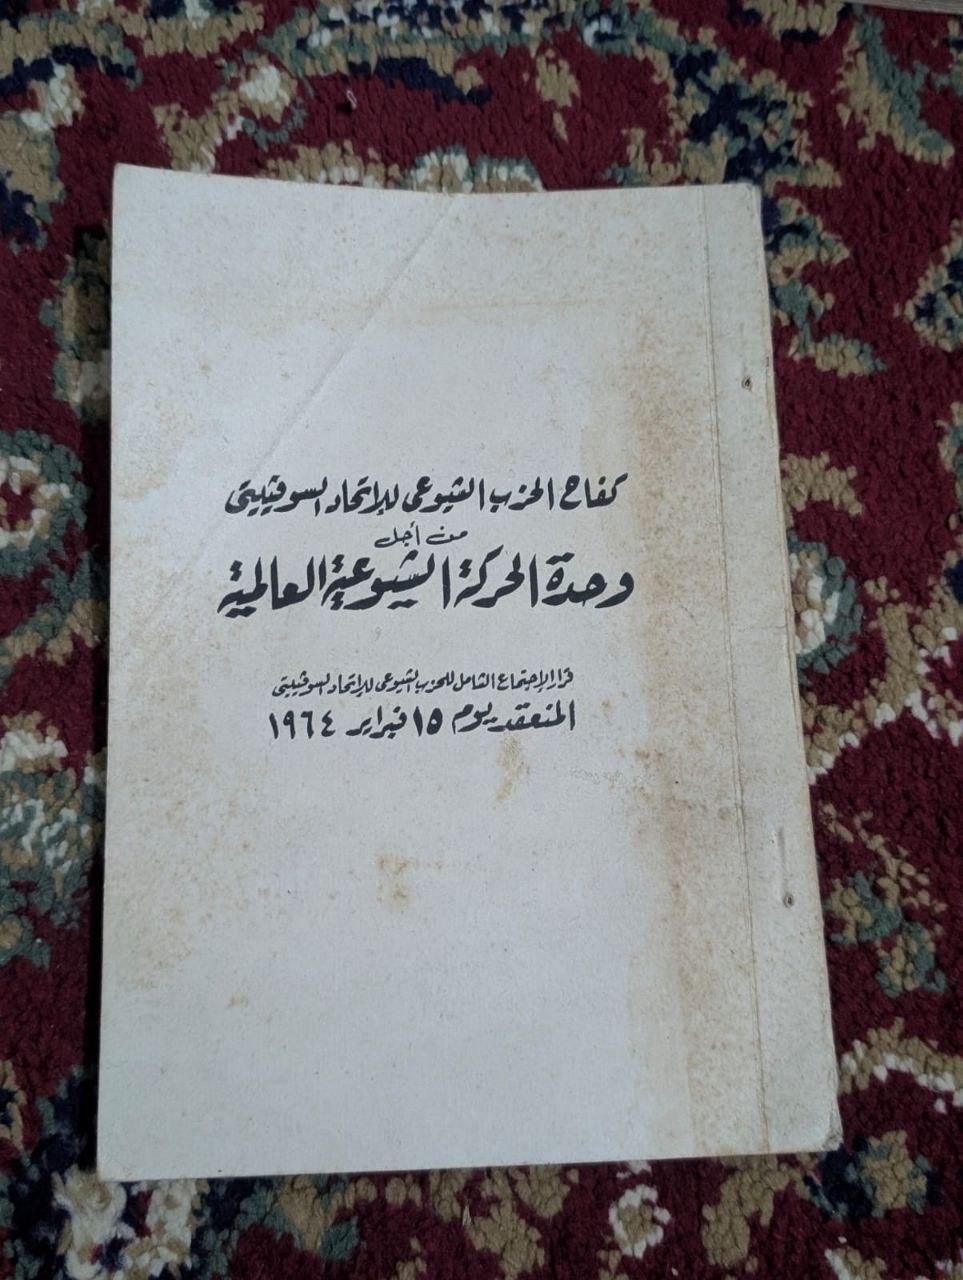 كفاح الحزب الشيوعى للاتحاد السوڤييتى
من أجل
وحدة الحركة الشيوعية العالمية
قرار الاجتماع الشامل للحزب الشيوعى للاتحاد السوڤييتى
المنعقد يوم ١٥ فبراير ١٩٦٤